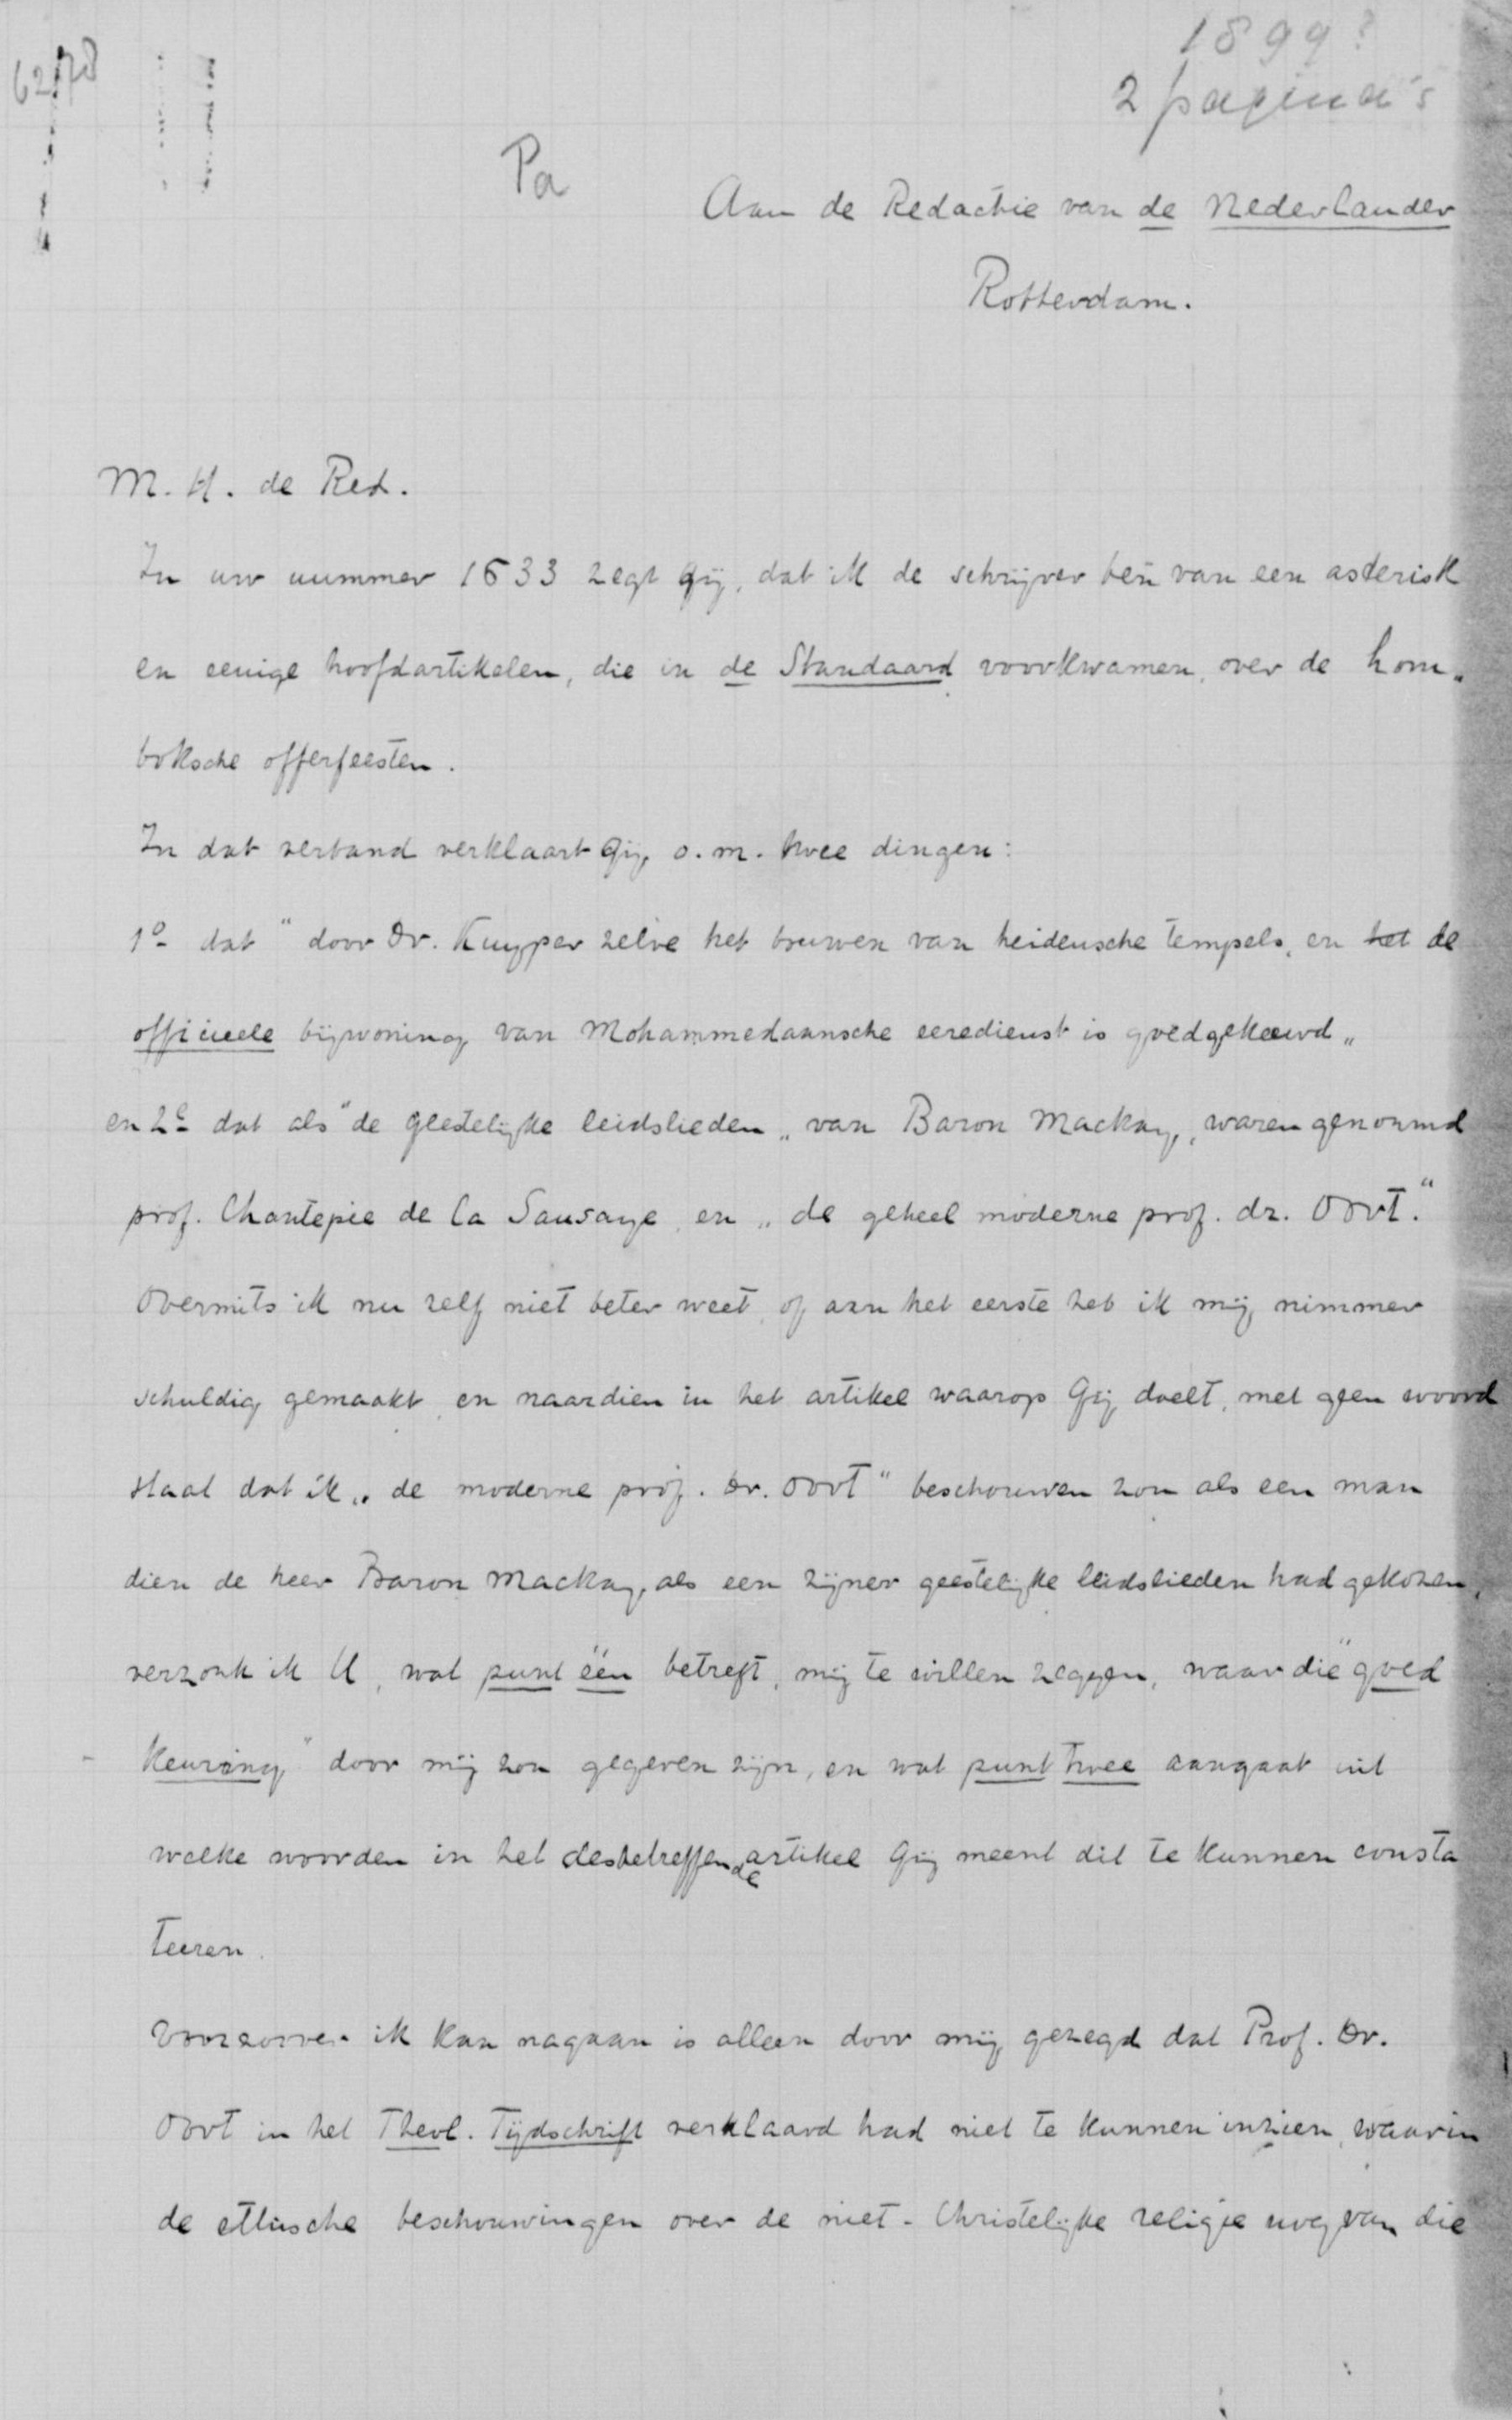 1899?
2 pagina's
6278
Pa
Aan de Redactie van de Nederlander
Rotterdam.
M. H. de Red.
In uw nummer 1633 zegt Gij, dat ik de schrijver ben van een asterisk
en eenige hoofdartikelen, die in de Standaard voorkwamen, over de Lom„
boksche offerfeesten.
In dat verband verklaart Gij, o.m. twee dingen:
1o dat "door Dr. Kuyper zelve het bouwen van heidensche tempels, en het de
officieele bijwoning van Mohammedaansche eeredienst is goedgekeurd„
en 2e dat als "de geestelijke leidslieden„ van Baron Mackay, waren genoemd
prof. Chantepie de la Saussaye, en „de geheel moderne prof. dr. Oort."
Overmits ik nu zelf niet beter weet, of aan het eerste heb ik mij nimmer
schuldig gemaakt, en naardien in het artikel waarop Gij doelt, met geen woord
staat dat ik „de moderne prof. Dr. Oort" beschouwen zou als een man
dien de heer Baron Mackay, als een zijner geestelijke leidslieden had gekozen,
verzoek ik U, wat punt één betreft, mij te willen zeggen, waar die "goed
keuring" door mij zou gegeven zijn, en wat punt twee aangaat uit
welke woorden in het desbetreffende artikel Gij meent dit te kunnen consta
teeren.
Voorzoover ik kan nagaan is alleen door mij gezegd dat Prof. Dr.
Oort in het Theol. Tijdschrift verklaard had niet te kunnen inzien, waarin
de ethische beschouwingen over de niet-Christelijke religie nog van die